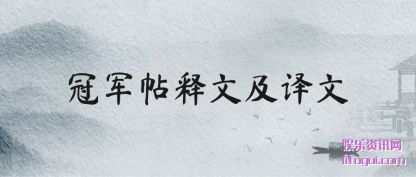 冠军帖释文及译文
娱乐资讯网
lifogui.com